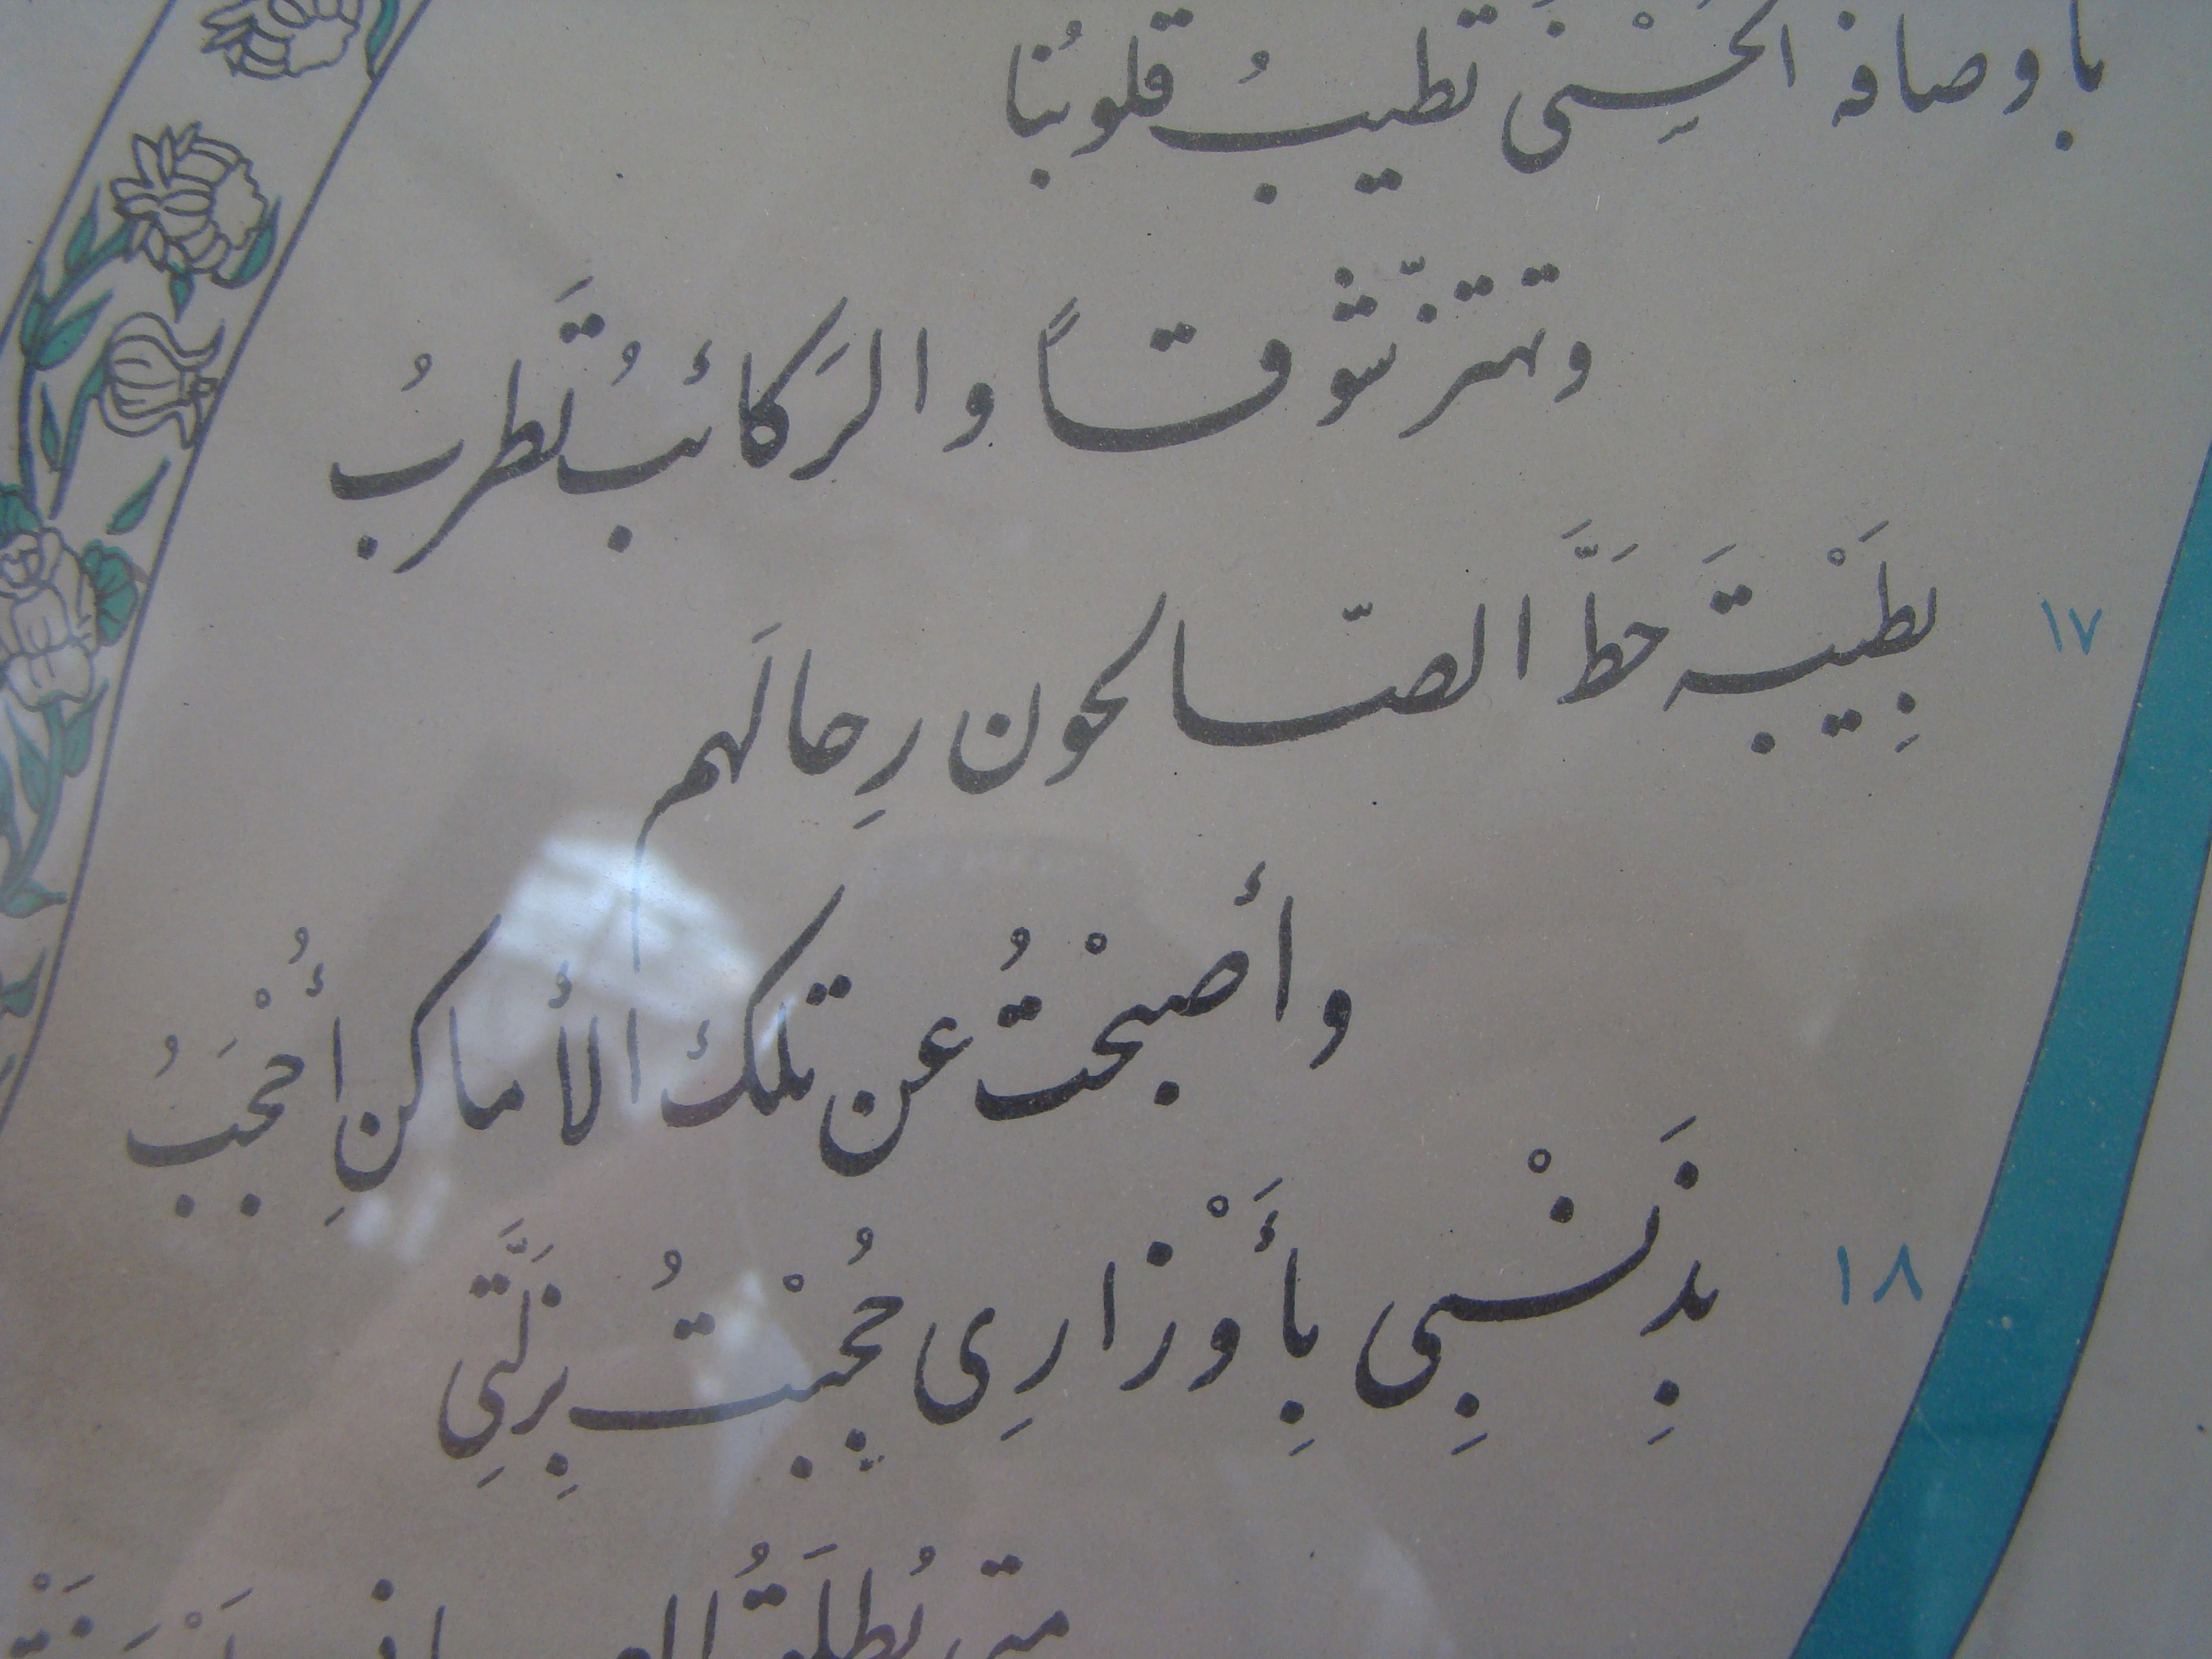 بأوصافه الحُسْنى تطيبُ قلوبُنا
وتهتزّ شوقاً والرَكائبُ تَطربُ
١٧ بِطَيْبَةَ حَطَّ الصّالحون رِحالَهم
وأصبحْتُ عن تلك الأماكنِ أُحْجَبُ
١٨ بِذَنْبِي بِأَوْزارِي حُجِبْتُ بِزَلَّتِي
متى يُطلَقُ